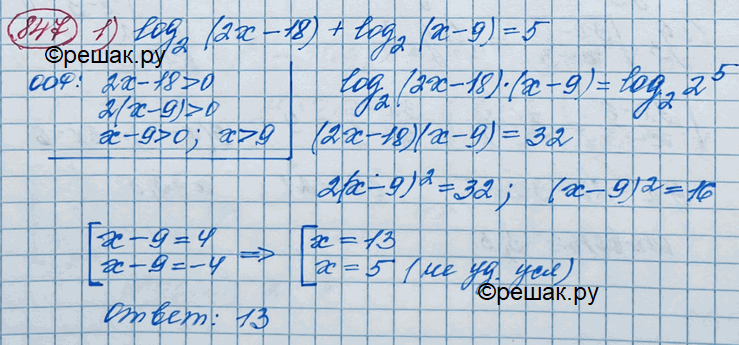 847 1) log₂ (2x-18) + log₂ (x-9) = 5
©решак.ру
ООФ: 2x-18>0
2(x-9)>0
x-9>0; x>9
log₂ (2x-18)·(x-9) = log₂ 2⁵
(2x-18)(x-9) = 32
2(x-9)² = 32; (x-9)² = 16
[x-9=4
x-9=-4 => [x=13
x=5 (не уд. усл)
©решак.ру
Ответ: 13